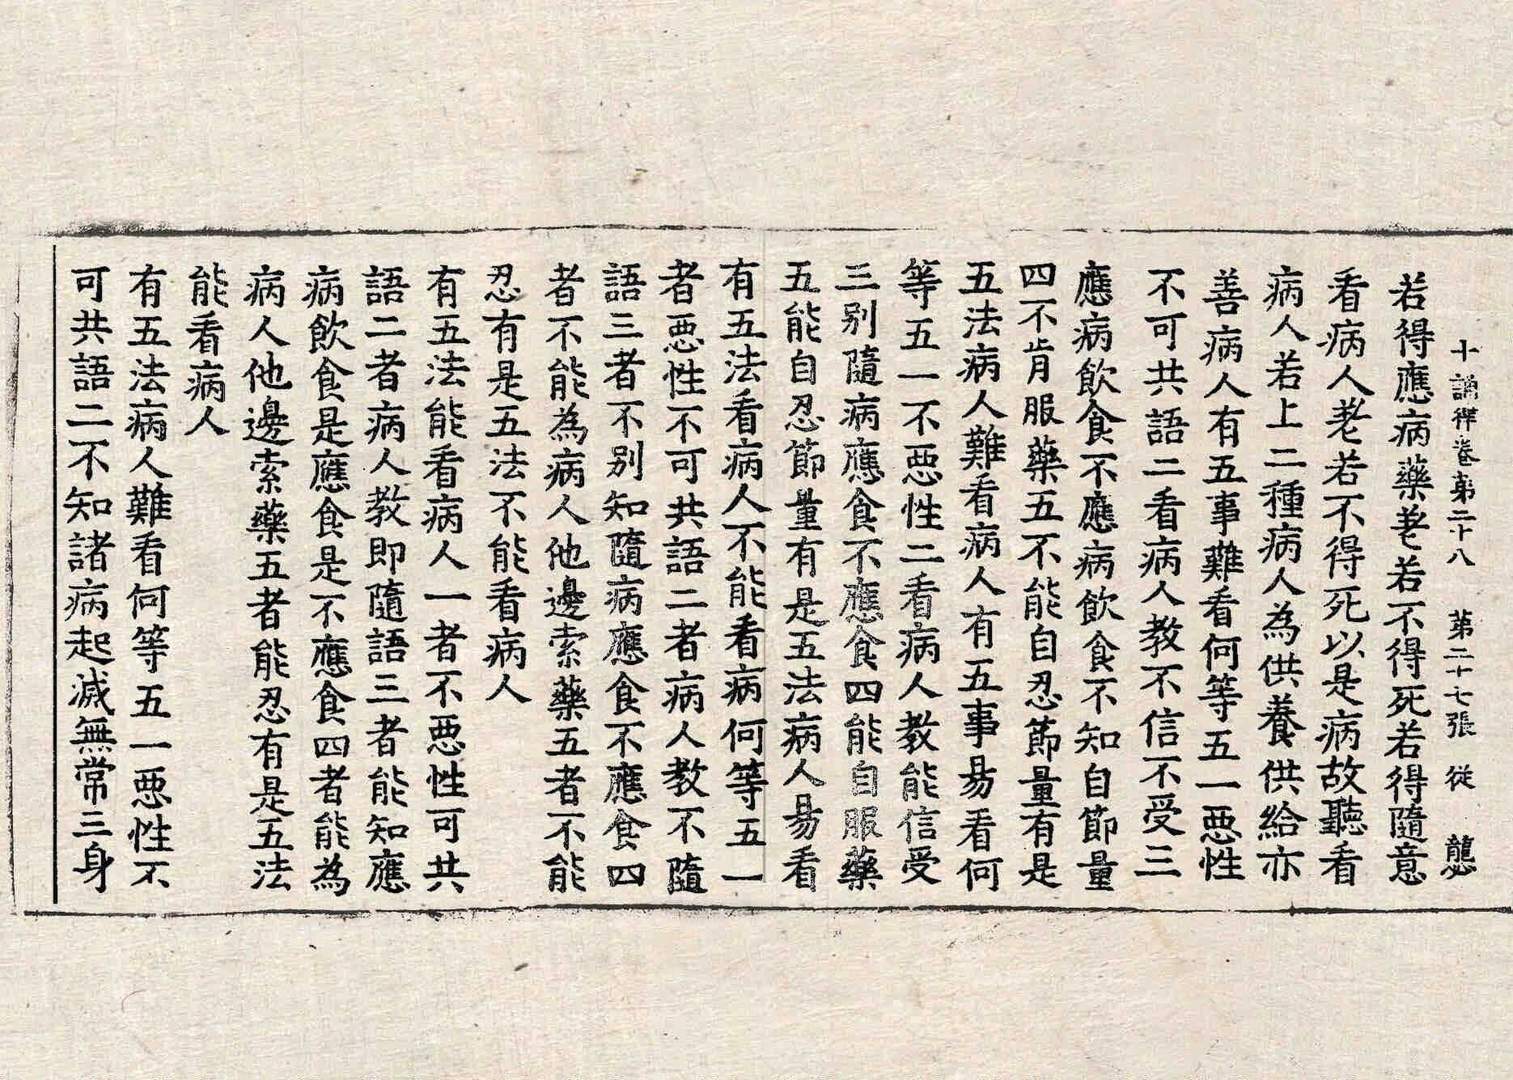 十誦律卷第二十八　第二十七張　從
若得應病藥差若不得死若得隨意
看病人差若不得死以是病故聽看
病人若上二種病人為供養供給亦
善病人有五事難看何等五一惡性
不可共語二看病人教不信不受三
應病飲食不應病飲食不知自節量
四不肯服藥五不能自忍節量有是
五法病人難看病人有五事易看何
等五一不惡性二看病人教能信受
三別隨病應食不應食四能自服藥
五能自忍節量有是五法病人易看
有五法看病人不能看病何等五一
者惡性不可共語二者病人教不隨
語三者不別知隨病應食不應食四
者不能為病人他邊索藥五者不能
忍有是五法不能看病人
有五法能看病人一者不惡性可共
語二者病人教即隨語三者能知應
病飲食是應食是不應食四者能為
病人他邊索藥五者能忍有是五法
能看病人
有五法病人難看何等五一惡性不
可共語二不知諸病起滅無常三身